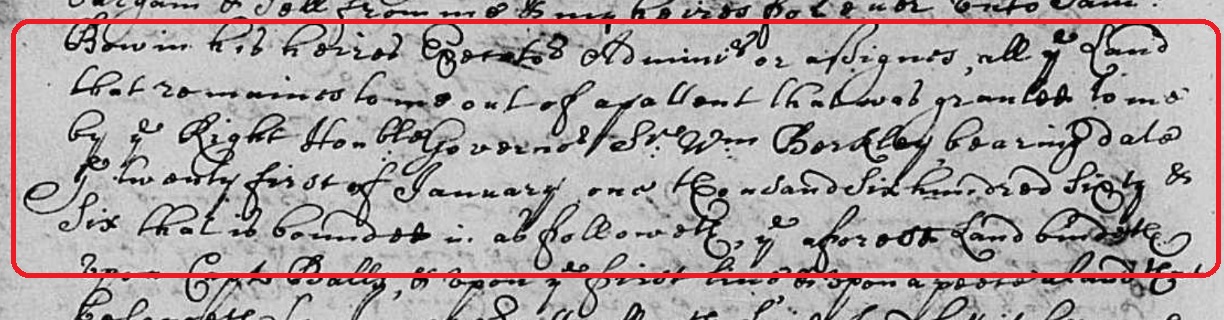 bargain & sell from me & my heires for ever unto Sam:
Bowin his heires Execetors Adminirs or assignes, all ye Land
that remaines to me out of a pattent that was granted to me
by ye Right Honble Governor Sr. Wm Berkley bearing date
ye twenty first of January one thousand six hundred sixty &
six that is bounded in as followeth, ye aforesd Land bindeth
upon Capt Bally, & upon ye first line & upon a peece a land that
belongeth